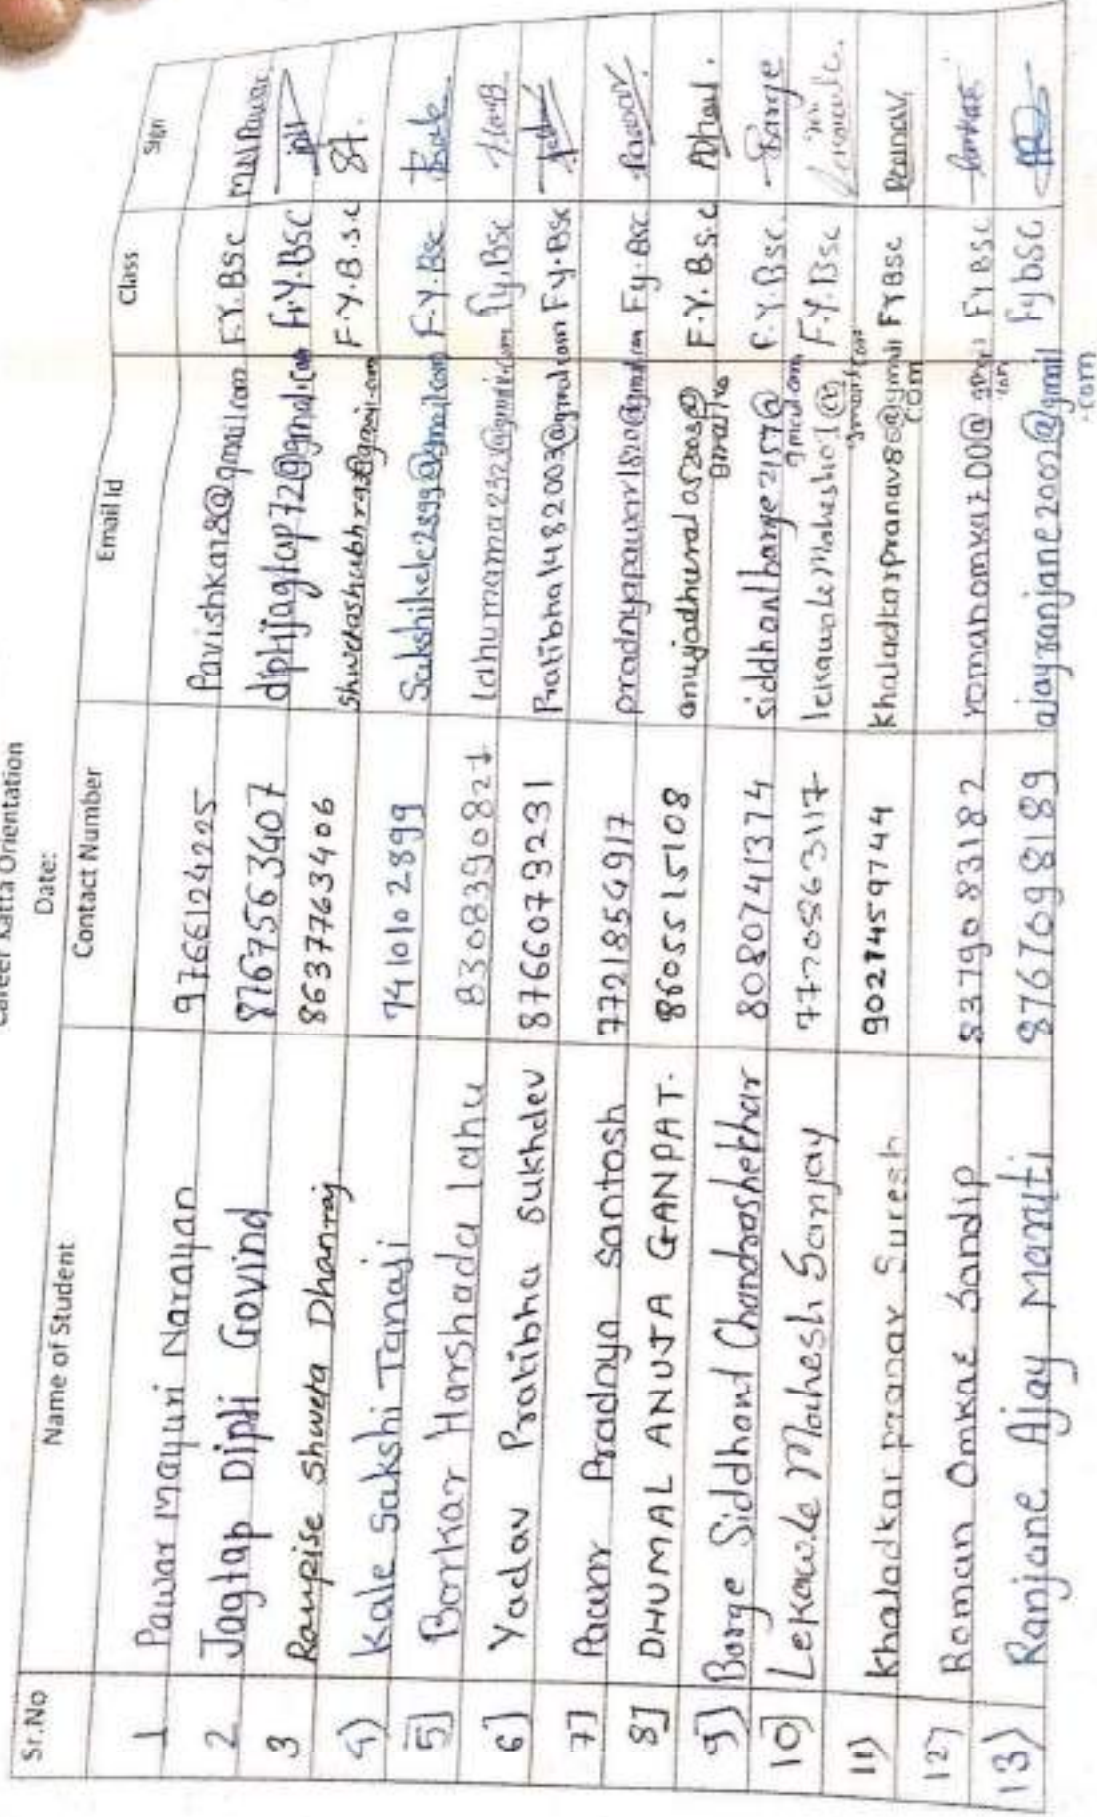 Career Katta Orientation
Date:
Sr.No Name of Student Contact Number Email Id Class Sign
1 Pawar Mayuri Narayan 9766124225 Pavishkar18@gmail.com F.Y.BSc MN Pawar.
2 Jagtap Dipti Govind 8767563407 diptijagtap72@gmail.com F.Y.BSC
3 Raupise Shweta Dhanraj 8637763406 F.Y.B.S.C
4) Kale Sakshi Tanaji 7410102899 Sakshikale2899@gmail.com F.Y.Bsc
5] Borkar Harshada lahu 8308390821 lahumama232@gmail.com Fy.Bsc
6] Yadav Pratibha Sukhdev 8766073231 Pratibha1482003@gmail.com Fy.Bsc
7] Pawar Pradnya Santosh 7721856917 pradnyapawar1820@gmail.com Fy.Bsc
8] DHUMAL ANUJA GANPAT. 8605515108 F.Y.B.S.C
9) Barge Siddhant Chandrashekhar 8080741374 siddhantbarge2157@ F.Y.Bsc. Barge
gmail.com
10] Lekawale Mahesh Sanjay 7770863117 lekawaleMahesh01@ F.Y.BSc
gmail.com
11) Khaladkar pranav Suresh 9027459744 khaladkarpranav86@gmail FYBSC Pranav
com
12] Roman Omkar Sandip 8379083182 FYBSC
13) Ranjane Ajay Maruti 8767698189 ajayranjane2000@gmail Fybsc
.com